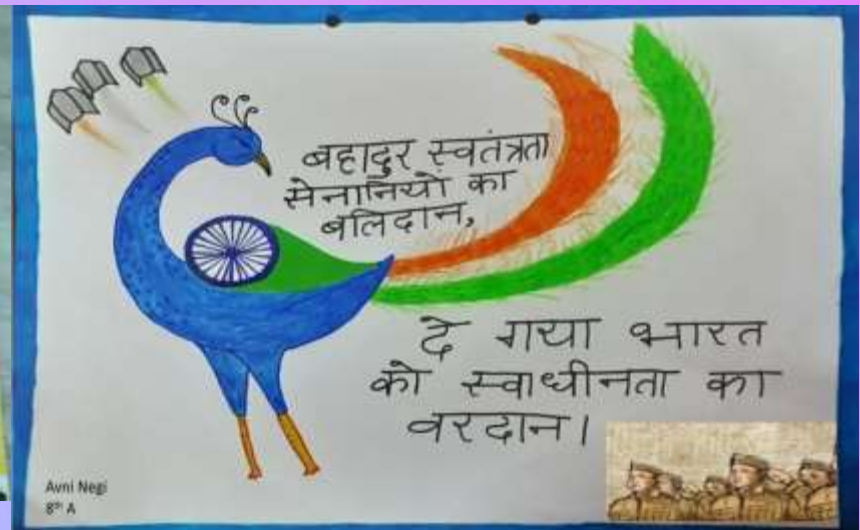 बहादुर स्वतंत्रता
सेनानियों का
बलिदान,
दे गया भारत
को स्वाधीनता का
वरदान।
Avni Negi
8th A